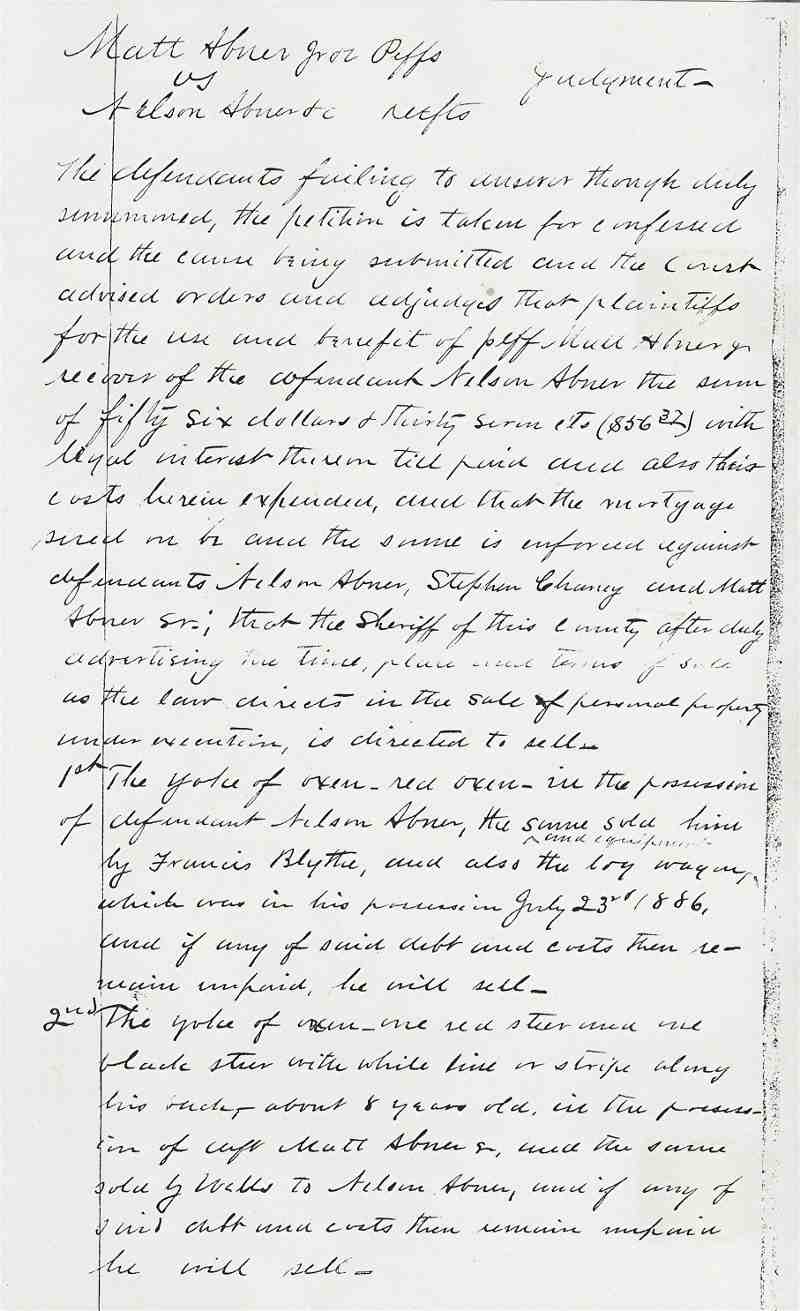 Matt Abner Jr &c Plffs
vs Judgment —
Nelson Abner &c Defts
The defendants failing to answer though duly
summoned, the petition is taken for confessed
and the cause being submitted and the Court
advised orders and adjudges that plaintiffs
for the use and benefit of plff Matt Abner Jr
recover of the defendant Nelson Abner the sum
of fifty six dollars & thirty seven cts ($56 37) with
legal interest thereon till paid and also their
costs herein expended, and that the mortgage
sued on be and the same is enforced against
defendants Nelson Abner, Stephen Chaney and Matt
Abner Sr.; that the Sheriff of this County after duly
advertising the time, place and terms of sale
as the law directs in the sale of personal property
under execution, is directed to sell —
1st The yoke of oxen — red oxen — in the possession
of defendant Nelson Abner, the same sold him
and equipments
by Francis Blythe, and also the log wagon,
which was in his possession July 23rd 1886,
and if any of said debt and costs then re-
main unpaid, he will sell —
2nd The yoke of oxen — one red steer and one
black steer with white line or stripe along
his back, about 8 years old, in the possess-
ion of deft Matt Abner Sr, and the same
sold by Walls to Nelson Abner, and if any of
said debt and costs then remain unpaid
he will sell —